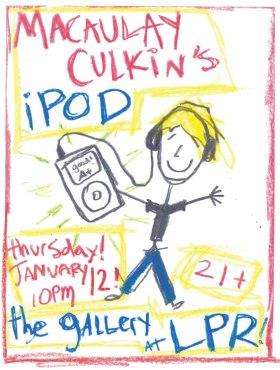 MACAULAY
CULKiN's
iPOD
goods
A+
thursday!
JANUARY
12!
10PM
21+
the gALLERY
AT LPR!